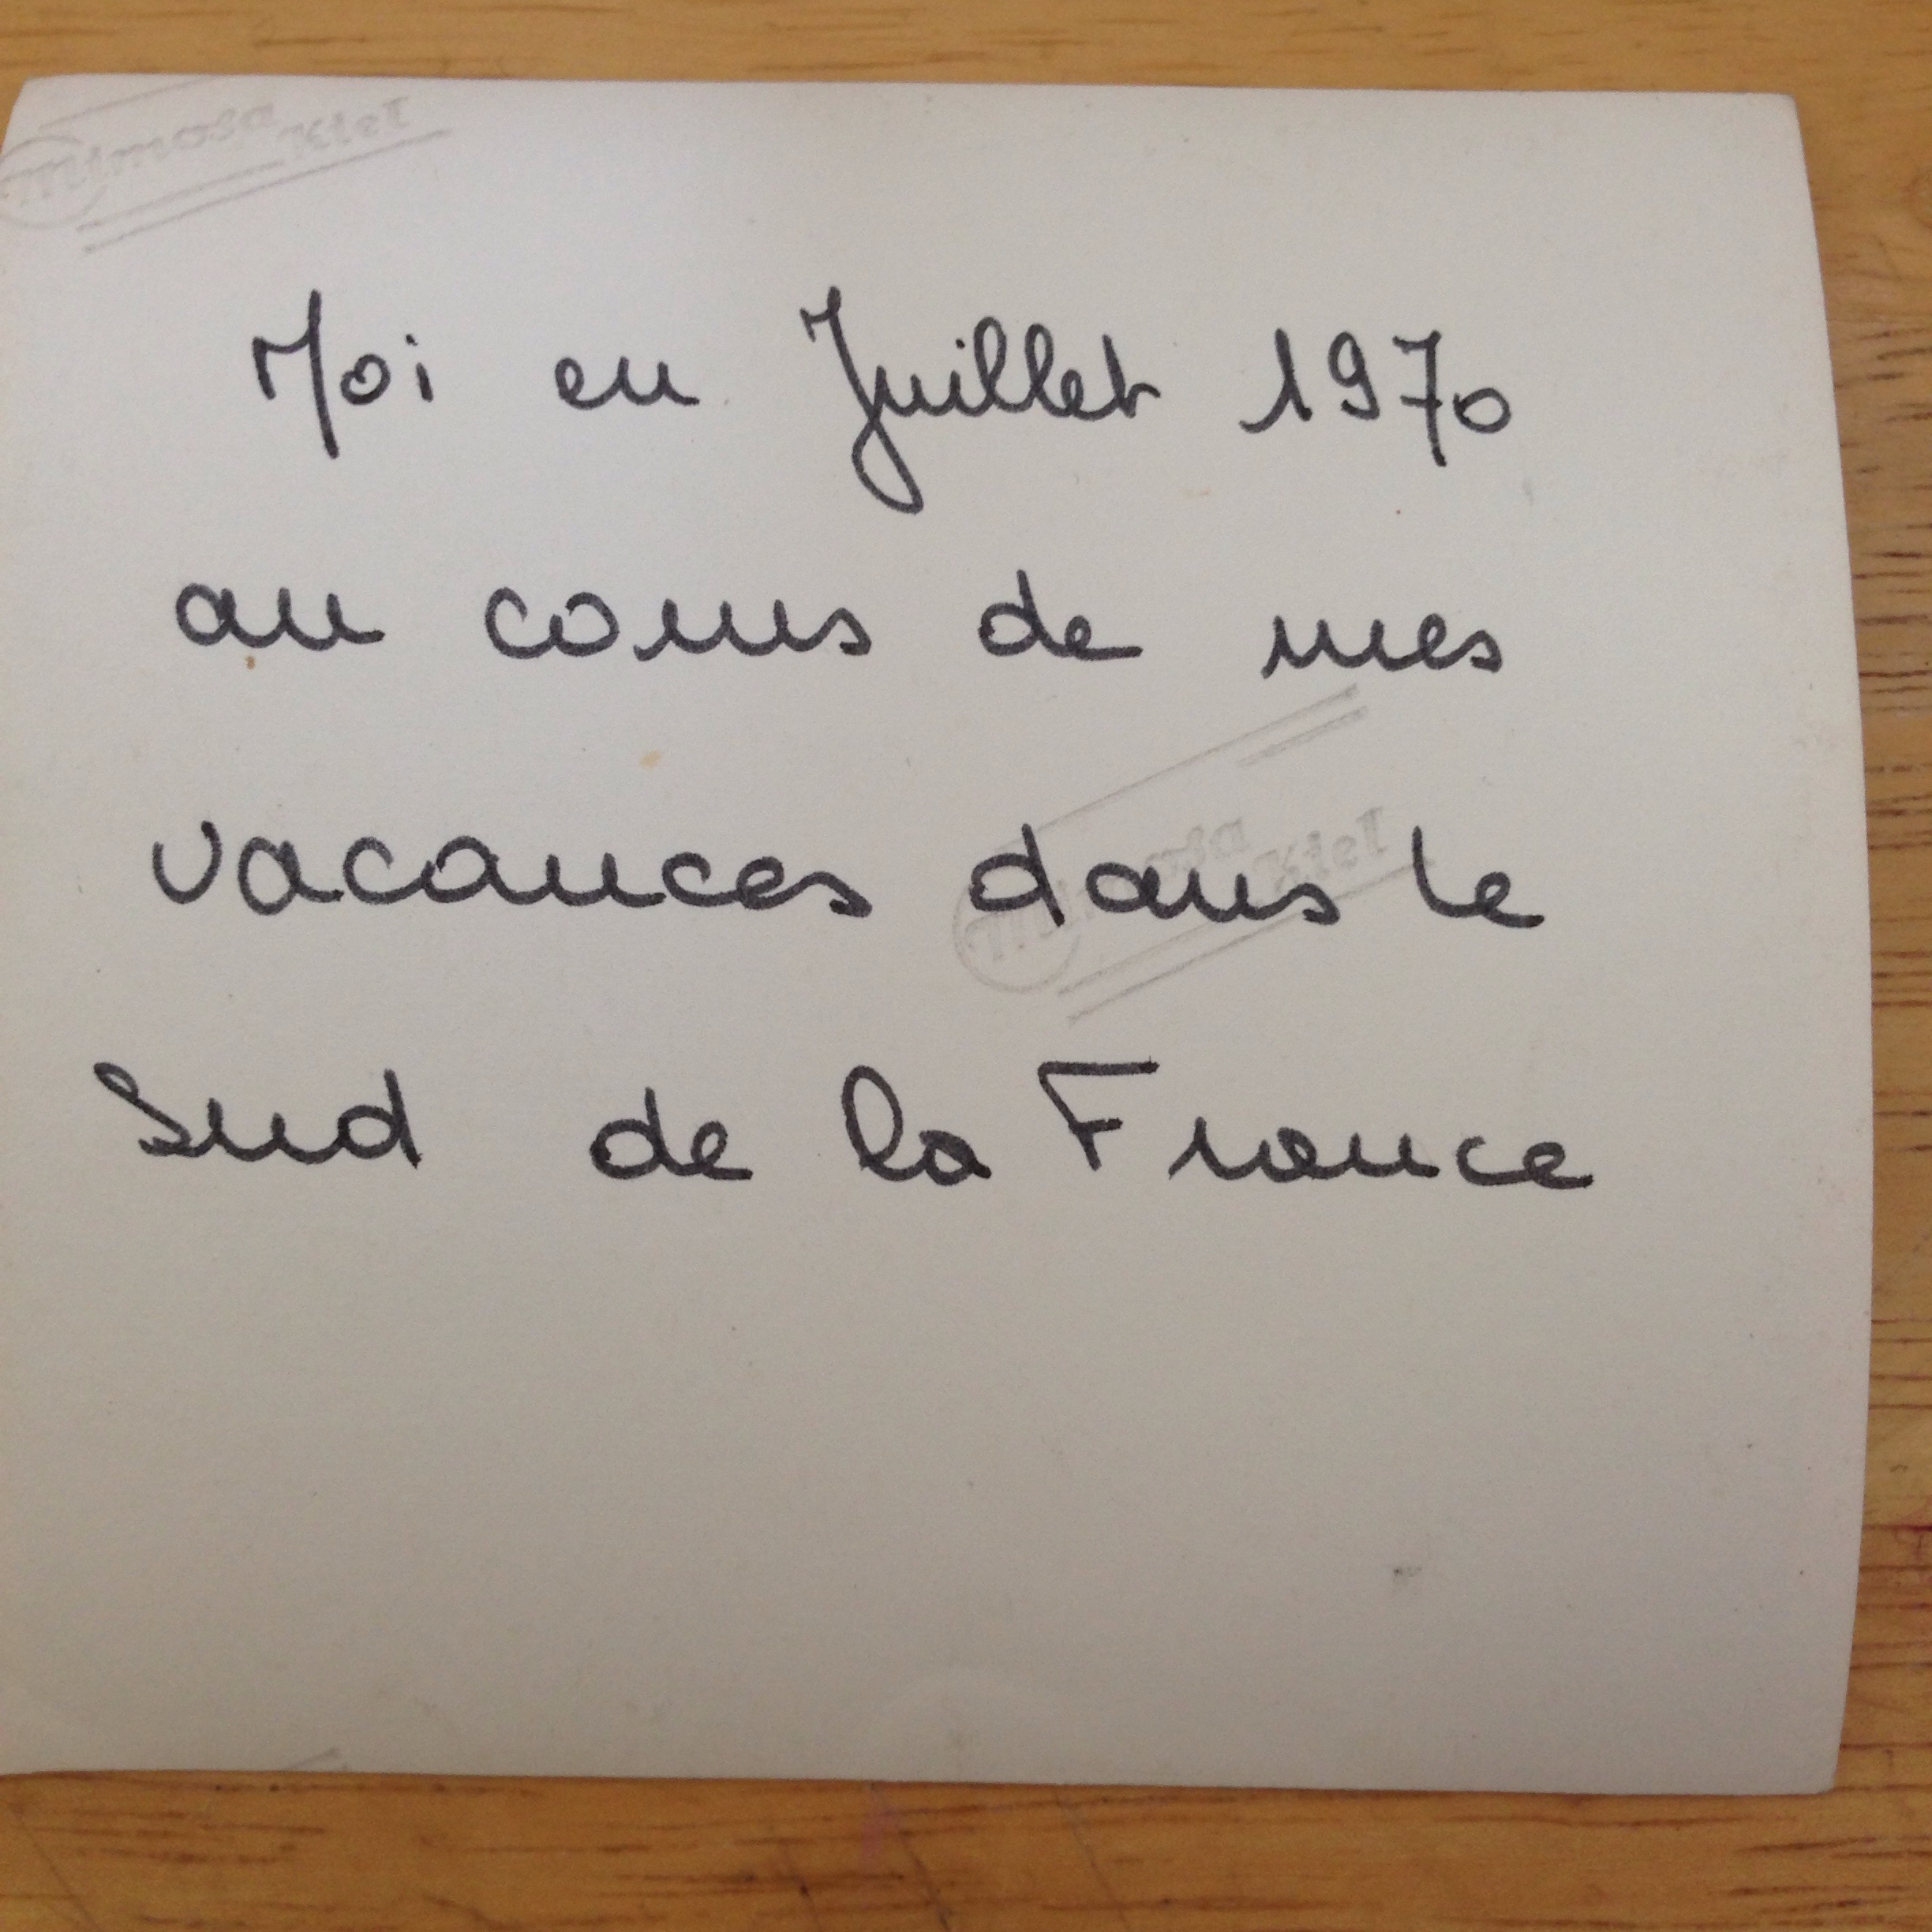 Mimosa Kiel
Moi en Juillet 1970
au cours de mes
vacances dans le
Mimosa Kiel
Sud de la France